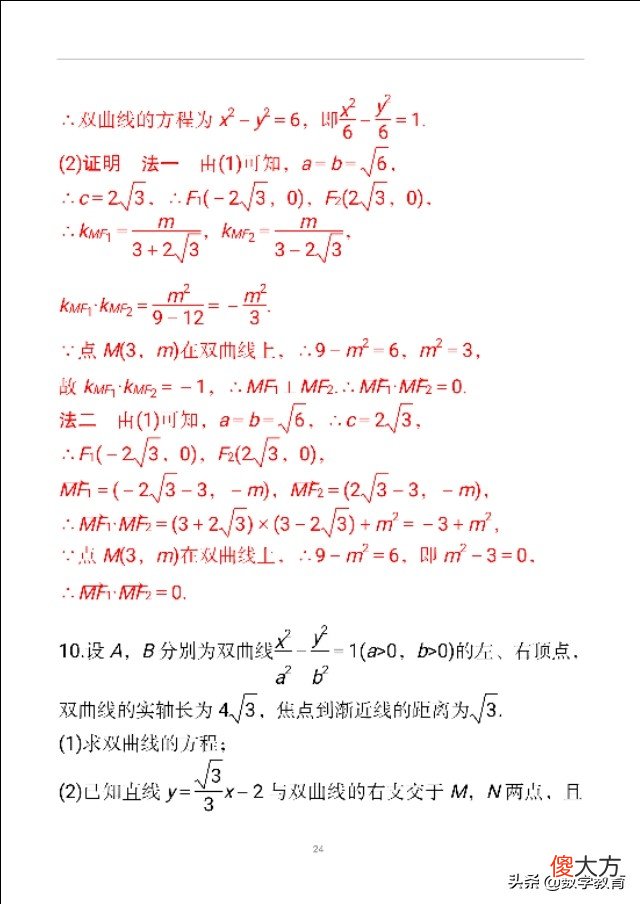 ∴双曲线的方程为 x²－y²＝6，即x²/6－y²/6＝1.
(2)证明　法一　由(1)可知，a＝b＝√6，
∴c＝2√3，∴F₁(－2√3，0)，F₂(2√3，0)，
∴kMF₁＝m/(3＋2√3)，kMF₂＝m/(3－2√3)，
kMF₁·kMF₂＝m²/(9－12)＝－m²/3.
∵点 M(3，m)在双曲线上，∴9－m²＝6，m²＝3，
故 kMF₁·kMF₂＝－1，∴MF₁⊥MF₂.∴MF₁·MF₂＝0.
法二　由(1)可知，a＝b＝√6，∴c＝2√3，
∴F₁(－2√3，0)，F₂(2√3，0)，
MF₁＝(－2√3－3，－m)，MF₂＝(2√3－3，－m)，
∴MF₁·MF₂＝(3＋2√3)×(3－2√3)＋m²＝－3＋m²，
∵点 M(3，m)在双曲线上，∴9－m²＝6，即 m²－3＝0，
∴MF₁·MF₂＝0.
10.设 A，B 分别为双曲线x²/a²－y²/b²＝1(a>0，b>0)的左、右顶点，
双曲线的实轴长为 4√3，焦点到渐近线的距离为√3.
(1)求双曲线的方程；
(2)已知直线 y＝√3/3x－2 与双曲线的右支交于 M，N 两点，且
24
傻大方
头条 @数学教育